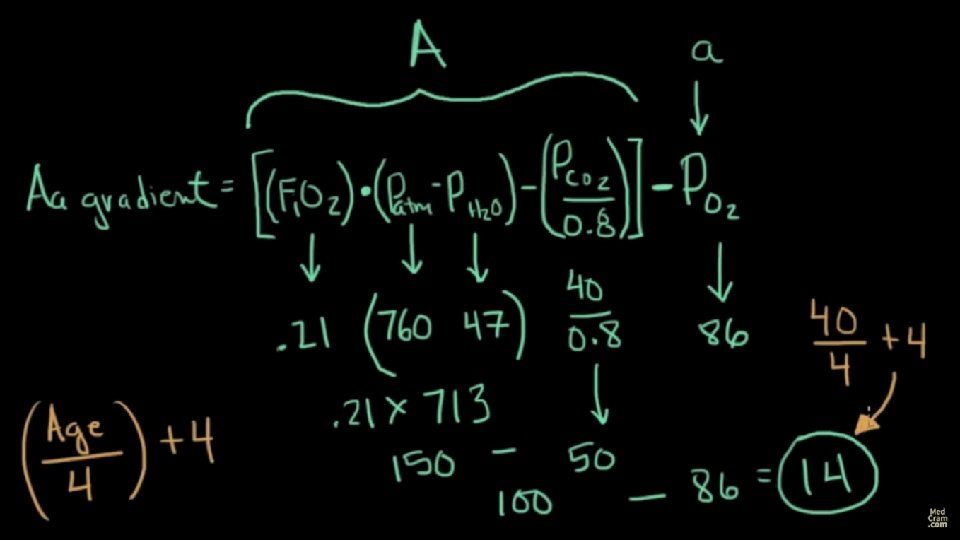 A
a
Aa gradient = [(FIO2)·(Patm-PH2O)-(PCO2/0.8)] - PO2
.21 (760 47) 40/0.8 86
40/4 + 4
.21 x 713
(Age/4) + 4
150 - 50
100 - 86 = 14
Med
Cram
.com